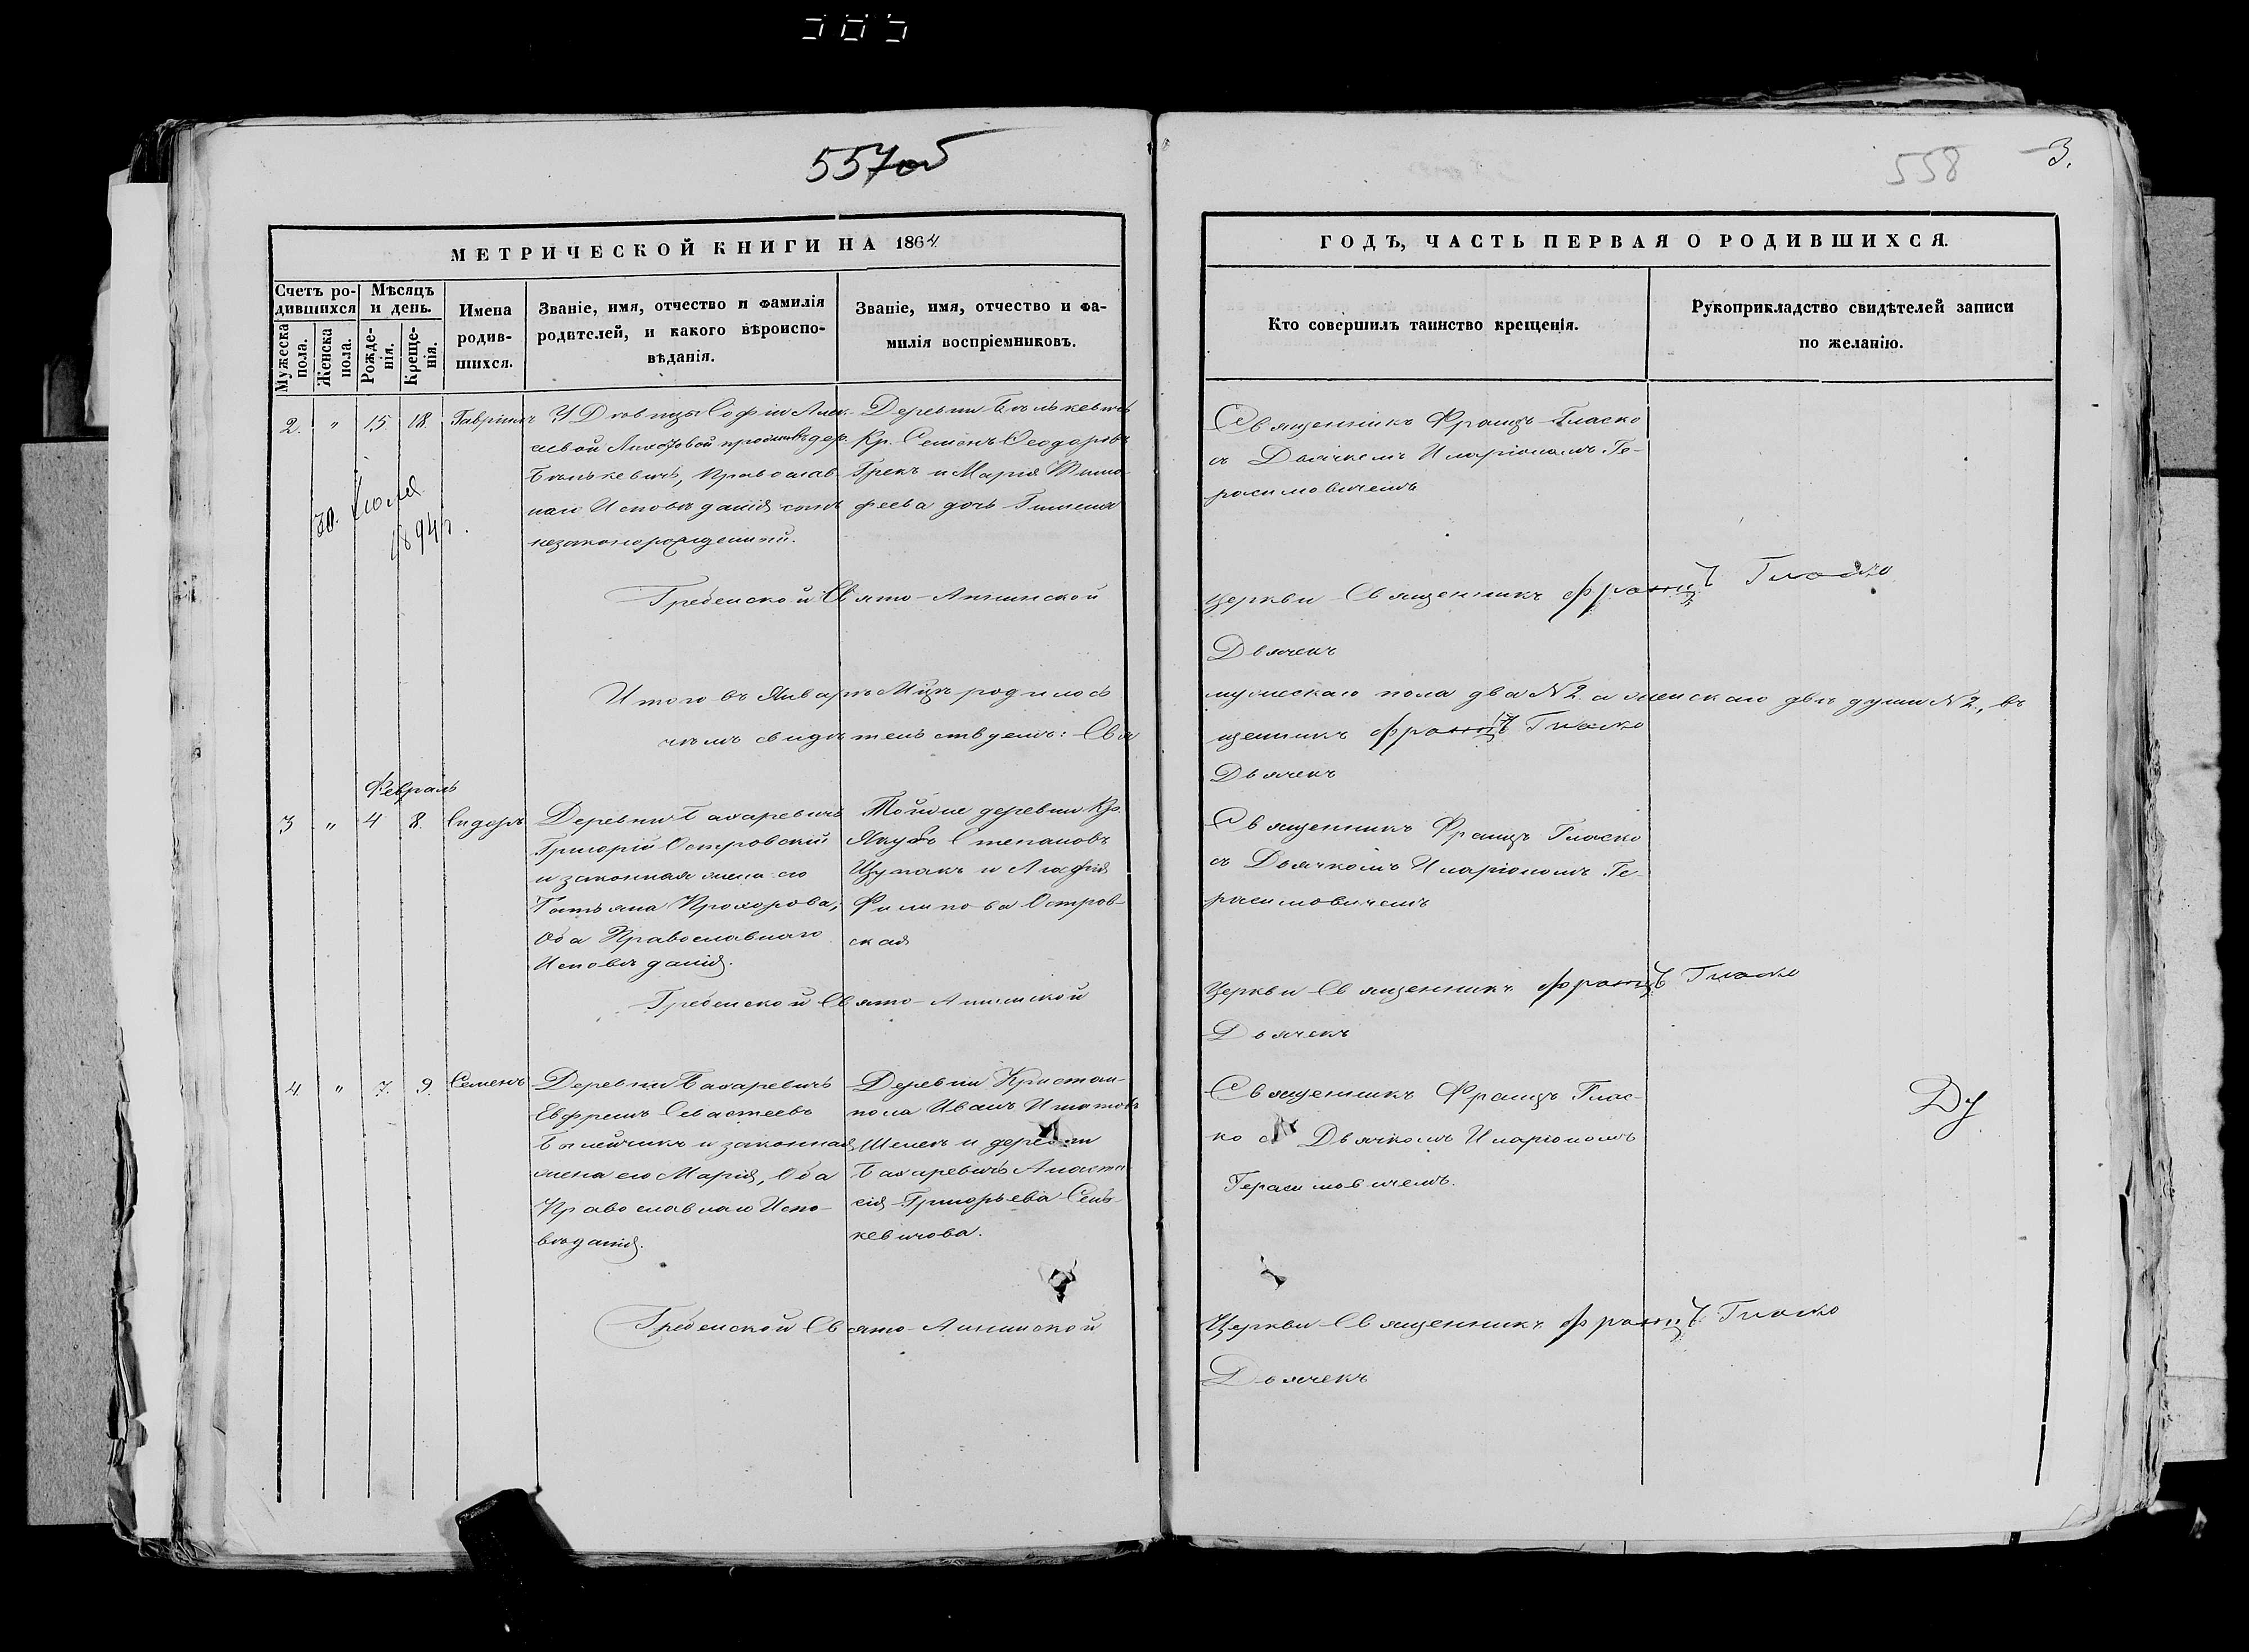 557об
558
3.
МЕТРИЧЕСКОЙ КНИГИ НА 1864
ГОДЪ, ЧАСТЬ ПЕРВАЯ О РОДИВШИХСЯ.
Счетъ ро-
дившихся
Мужеска
пола.
Женска
пола.
Мѣсяцъ
и день.
Рожде-
нія.
Креще-
нія.
Имена
родив-
шихся.
Званіе, имя, отчество и фамилія
родителей, и какого вѣроиспо-
вѣданія.
Званіе, имя, отчество и фа-
милія воспріемниковъ.
Кто совершилъ таинство крещенія.
Рукоприкладство свидѣтелей записи
по желанію.
2. " 15. 18. Гавріилъ
У Дѣвицы Софіи Алек-
сѣевой
дер.
Православ-
наго Исповѣданія сынъ
незаконорожденный.
30. Іюля
1894 г.
Деревни
Кр. Семенъ Ѳеодоровъ
Грекъ и Марія Тимо-
феева дочь
Священникъ Францъ Гласко
съ Дьячкемъ Иларіономъ Ге-
расимовичемъ
Гребенской Свято-Аннинской
Церкви Священникъ Францъ Гласко
Дьячекъ
Итого въ Январѣ Мцѣ родилось
мужескаго пола два №2 а женскаго двѣ души №2, въ
чемъ свидѣтельствуемъ: Свя
щенникъ Францъ Гласко
Дьячекъ
Февраль
3 " 4 8. Сидоръ
Деревни Бахаревичъ
Григорій Островскій
и законная жена его
Татьяна Прохорова,
Оба Православнаго
Исповѣданія.
Тойже деревни Кр.
Якубъ Степановъ
Цумакъ и Агафія
Филипова Остров-
ская
Священникъ Францъ Гласко
съ Дьячкомъ Иларіономъ Ге-
расимовичемъ
Гребенской Свято-Аннинской
Церкви Священникъ Францъ Гласко
Дьячекъ
4. " 7. 9. Семенъ
Деревни Бахаревичъ
Евфремъ Севастеевъ
и законная
жена его Марія, Оба
Православнаго Испо-
вѣданія.
Деревни Кристам-
пола Иванъ Игнатовъ
Шелегъ и деревни
Бахаревичъ Анаста-
сія Григорьева Сень-
кевичова.
Священникъ Францъ Глас-
ко съ Дьячкомъ Иларіономъ
Герасимовичемъ.
Гребенской Свято-Аннинской
Церкви Священникъ Францъ Гласко
Дьячекъ